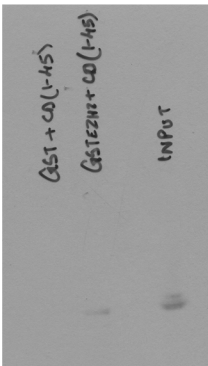 GST + CD(1-45)
GSTEZH2 + CD(1-45)
INPUT